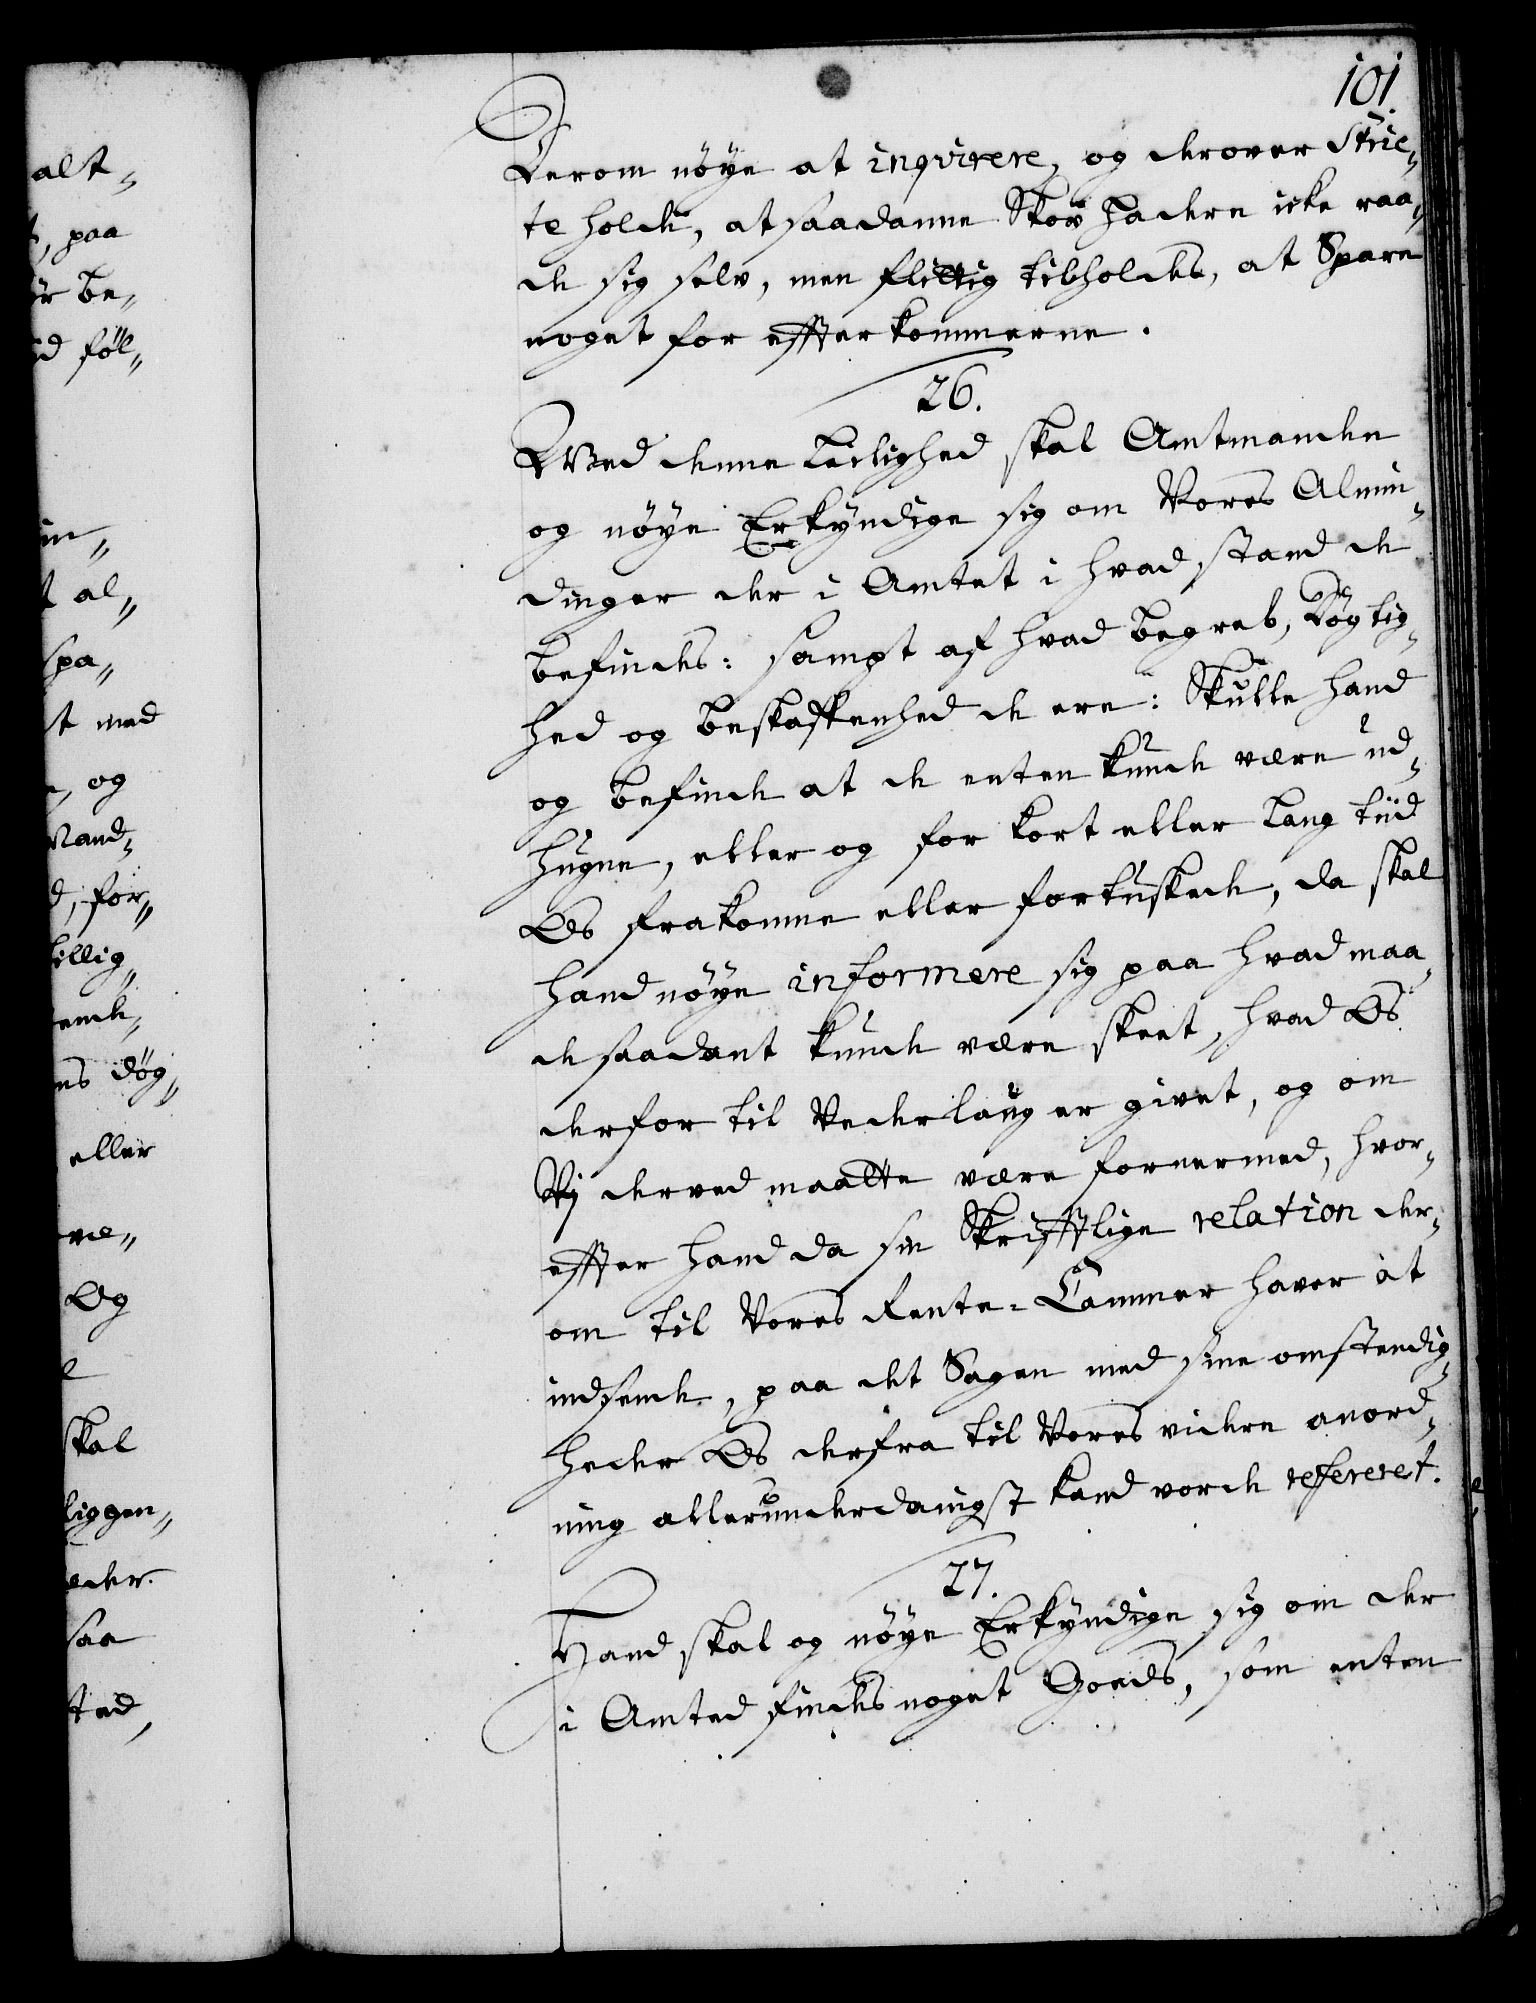 101.
Derom nöye at inqvirere, og derover Stric-
te holde, at saadanne Skov hadere icke raa-
de sig selv, men flittig tilholdes, at Spare
noget for effterkommerne.
26.
Wed denne Leilighed skal Amtmanden
og nöye Erkyndige sig om Vores Almin-
dinger der i Amtet i hvad stand de
befindes: sampt af hvad begreb, Dögtig-
hed og beskaffenhed de ere: Skulle hand
og befinde at de enten kunde være ud-
hugne, eller og for kort eller lang tiid
Os frakomne eller fortuskede, da skal
hand nöye informere sig paa hvad maa-
de saadant kunde være skeet, hvad Os
derfor til Vederlaug er givet, og om
Vj derved maatte være fornermed, hvor-
effter hand da sin Skrifftlige relation der-
om til Vores Rente-Cammer haver at
indsende, paa det Sagen med sine omstendig-
heder Os derfra til Vores videre anord-
ning allerunderdanigst kand vorde refereret.
27.
Hand skal og nöye Erkyndige sig om der
i Amted findes noget Goeds, som enten
alt-
paa
be-
föl-
al-
spa-
med
og
for-
döge-
eller
Og
skal
liggen-
saa